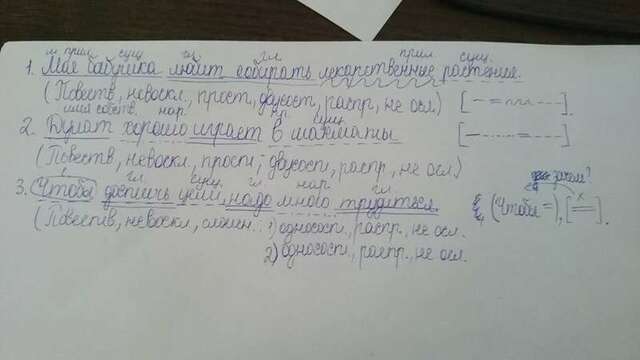 м. прил. сущ. гл. гл. прил. сущ.
1. Моя бабушка любит собирать лекарственные растения.
(Повеств, невоскл., прост, двусост, распр, не осл.) [— = ~~~ ---].
имя собств. нар. гл. пр. сущ.
2. Булат хорошо играет в шахматы
(Повеств, невоскл., прост, двусост, распр, не осл.) [— -.-.- = ---].
гл. сущ. гл. нар. гл. зачем?
3. Чтобы достичь цели, надо много трудиться.
(Повеств, невоскл, сложн. 1) односост, распр., не осл. (Чтобы =), [=].
2) односост, распр., не осл.